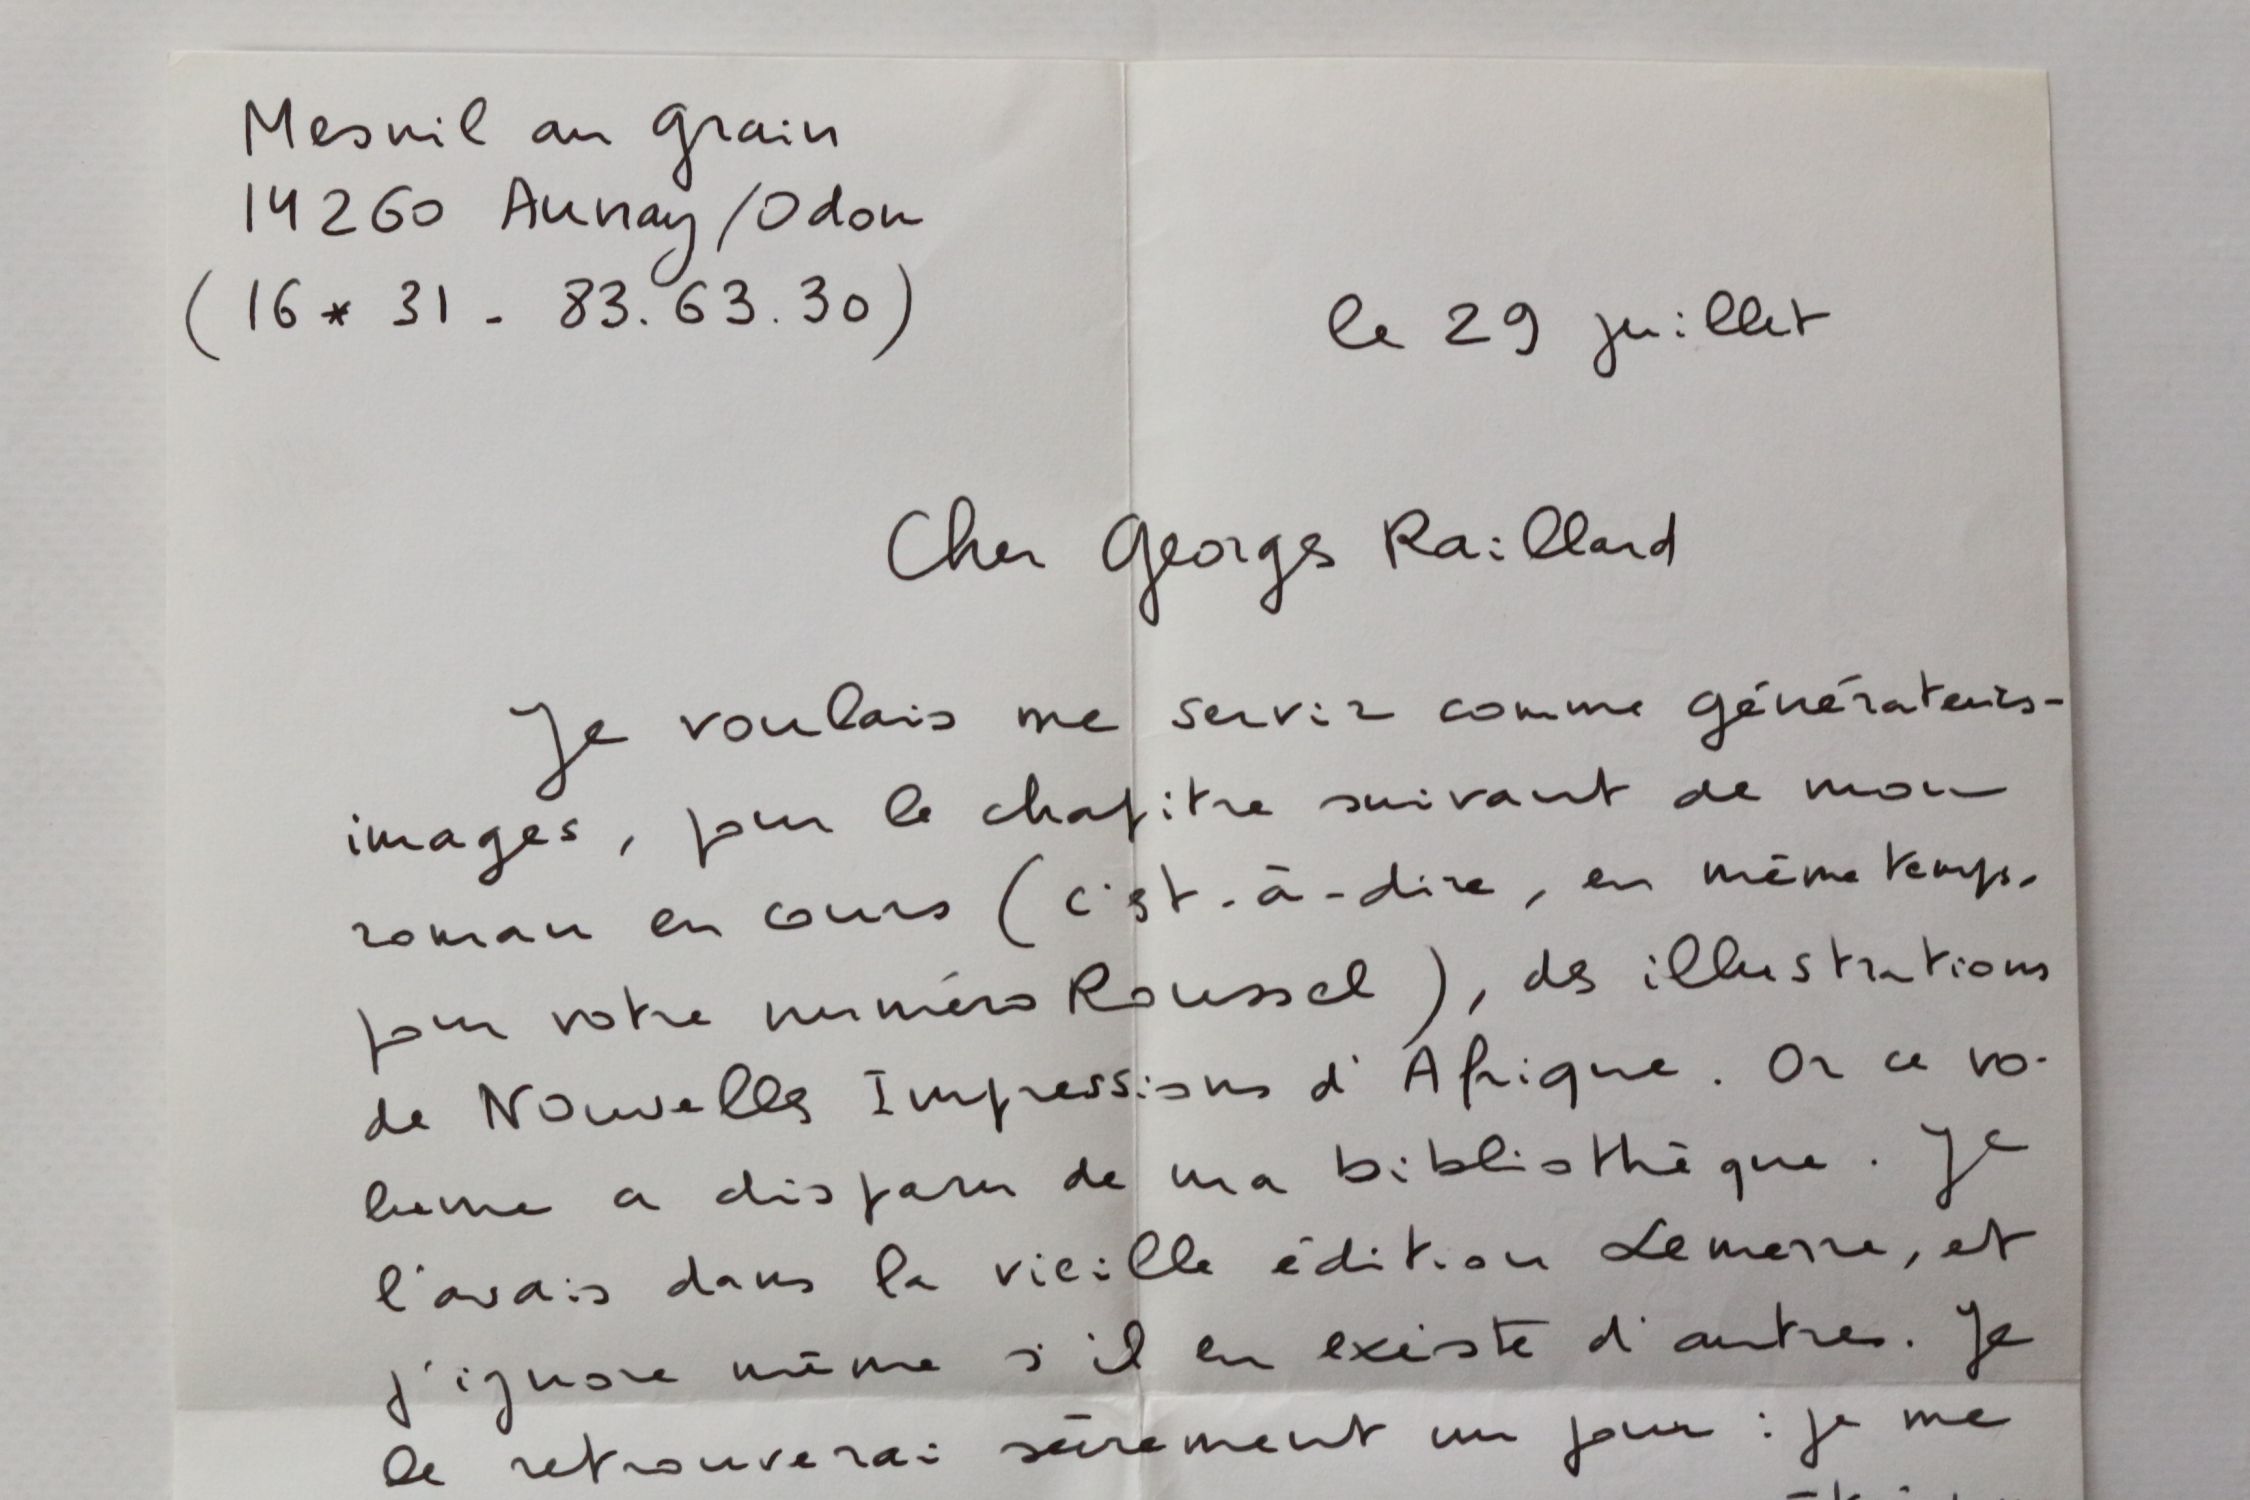 Mesnil au Grain
14260 Aunay/Odon
(16 * 31 - 83.63.30)
le 29 juillet
Cher Georges Raillard
Je voulais me servir comme générateurs-
images, pour le chapitre suivant de mon
roman en cours (c'est-à-dire, en même temps,
pour votre numéro Roussel), des illustrations
de Nouvelles Impressions d'Afrique. Or ce vo-
lume a disparu de ma bibliothèque. Je
l'avais dans la vieille édition Lemerre, et
j'ignore même s'il en existe d'autres. Je
le retrouverai sûrement un jour : je me